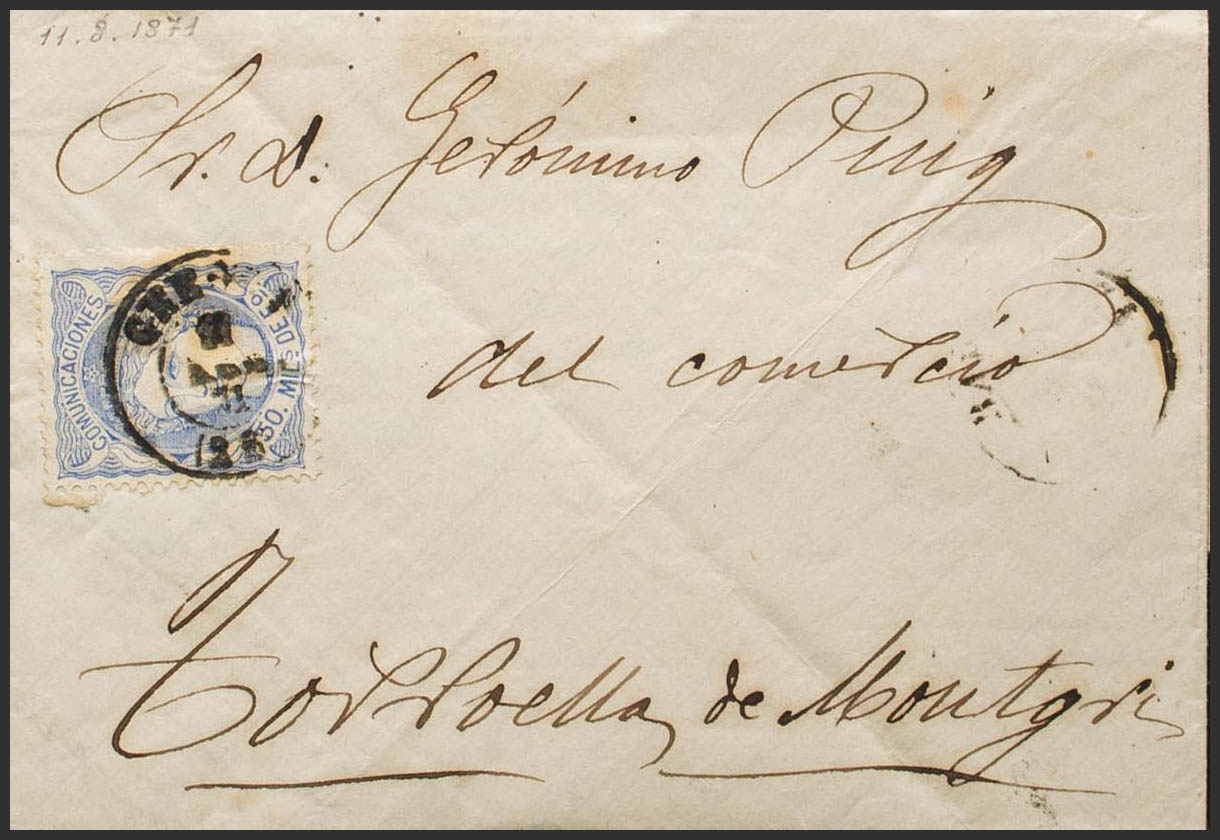 11.8.1871
Sr. D. Gerónimo Puig
COMUNICACIONES
50. MILs DE Eo
del comercio
Torroella de Montgri